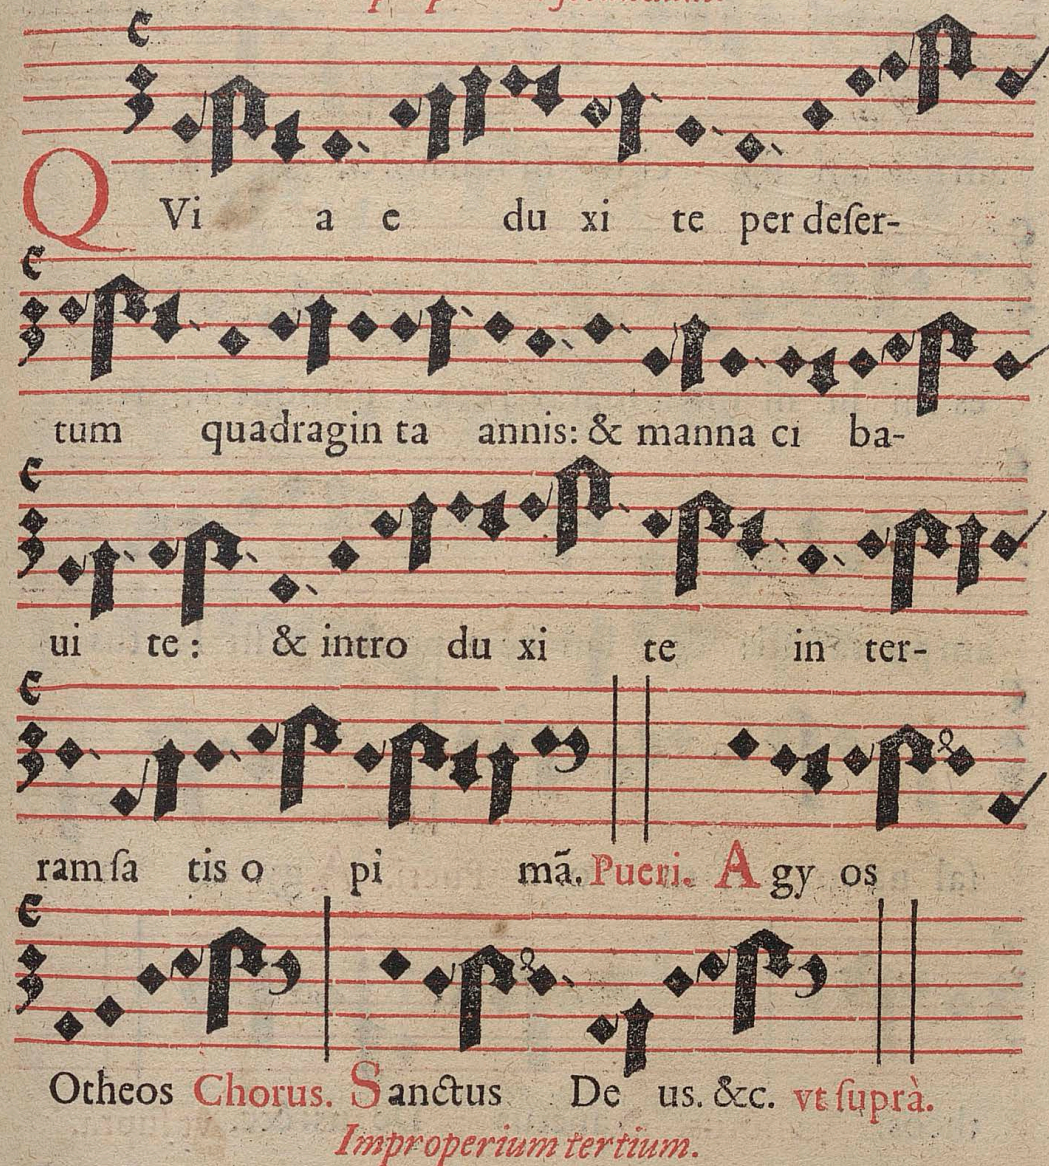 QVi a e du xi te per deſer-
tum quadragin ta annis: & manna ci ba-
ui te: & intro du xi te in ter-
ram ſa tis o pi mã. Pueri. Agy os
Otheos Chorus. Sanctus De us. &c. vt ſuprà.
Improperium tertium.